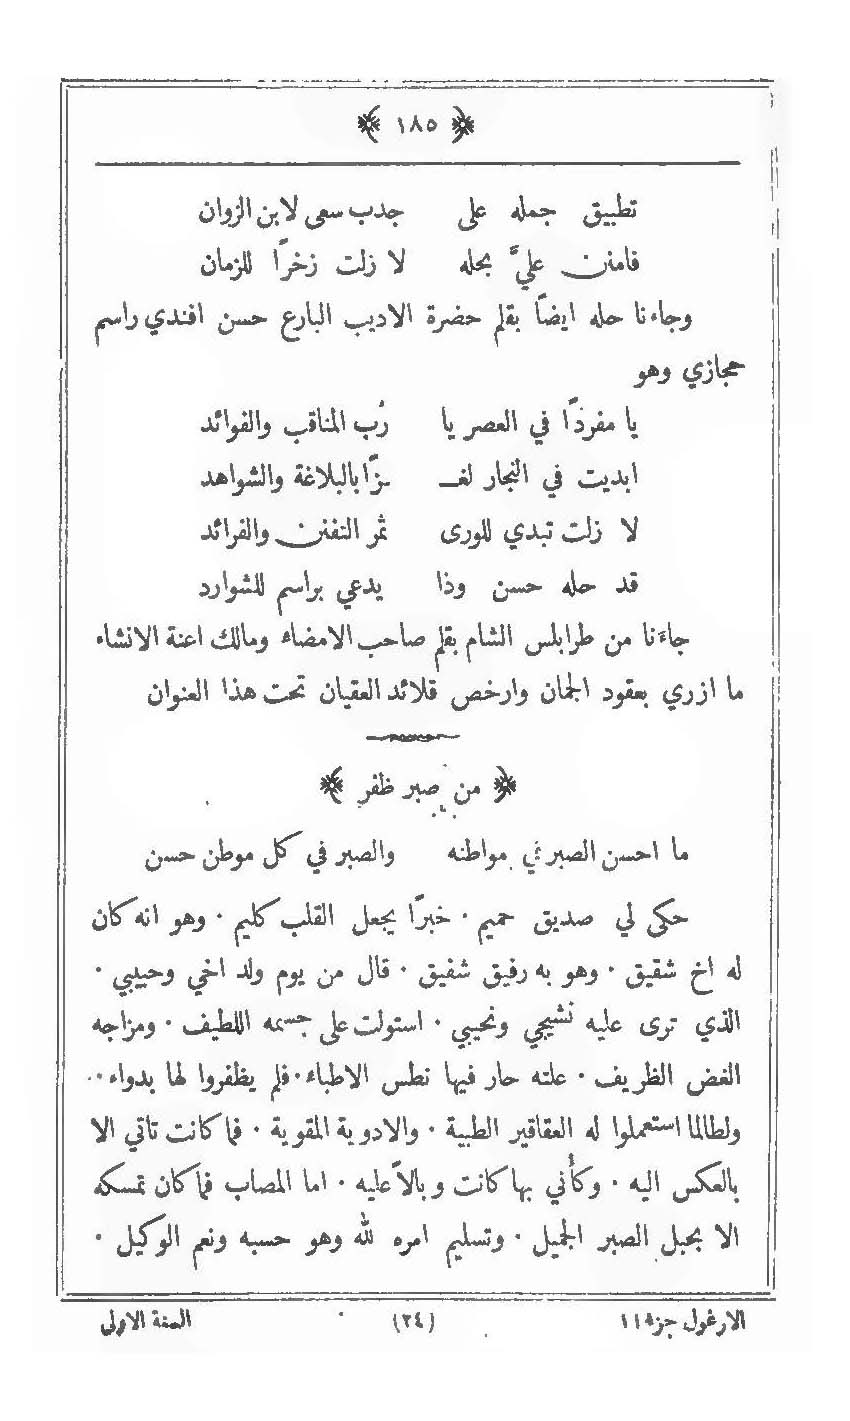 ﴿ ١٨٥ ﴾
تطبيق جمله على جدب سعى لابن الزوان
فامنن عليَّ بحله لا زلت زخرًا للزمان
وجاءنا حله ايضًا بقلم حضرة الاديب البارع حسن افندي راسم
حجازي وهو
يا مفردًا في العصر يا رُب المناقب والفوائد
ابديت في النجار لغـ ـزًا بالبلاغة والشواهد
لا زلت تبدي للورى ثمر التفنن والفرائد
قد حله حسن وذا يدعي براسم للشوارد
جاءنا من طرابلس الشام بقلم صاحب الامضاء ومالك اعنة الانشاء
ما ازري بعقود الجمان وارخص قلائد العقيان تحت هذا العنوان
﴿ من صبر ظفر ﴾
ما احسن الصبر في مواطنه والصبر في كل موطن حسن
حكى لي صديق حميم ٠ خبرًا يجعل القلب كليم ٠ وهو انه كان
له اخ شقيق ٠ وهو به رفيق شفيق ٠ قال من يوم ولد اخي وحيبي ٠
الذي ترى عليه نشيجي ونحيبي ٠ استولت على جسمه اللطيف ٠ ومزاجه
الغض الظريف ٠ علته حار فيها نطس الاطباء ٠ فلم يظفروا لها بدواء ٠
ولطالما استعملوا له العقاقير الطبية ٠ والادوية المقوية ٠ فما كانت تاتي الا
بالعكس اليه ٠ وكأني بها كانت وبالاً عليه ٠ اما المصاب فما كان تمسكه
الا بحبل الصبر الجميل ٠ وتسليم امره لله وهو حسبه ونعم الوكيل ٠
الارغول جزء ١١ (٢٤) السنة الاولى